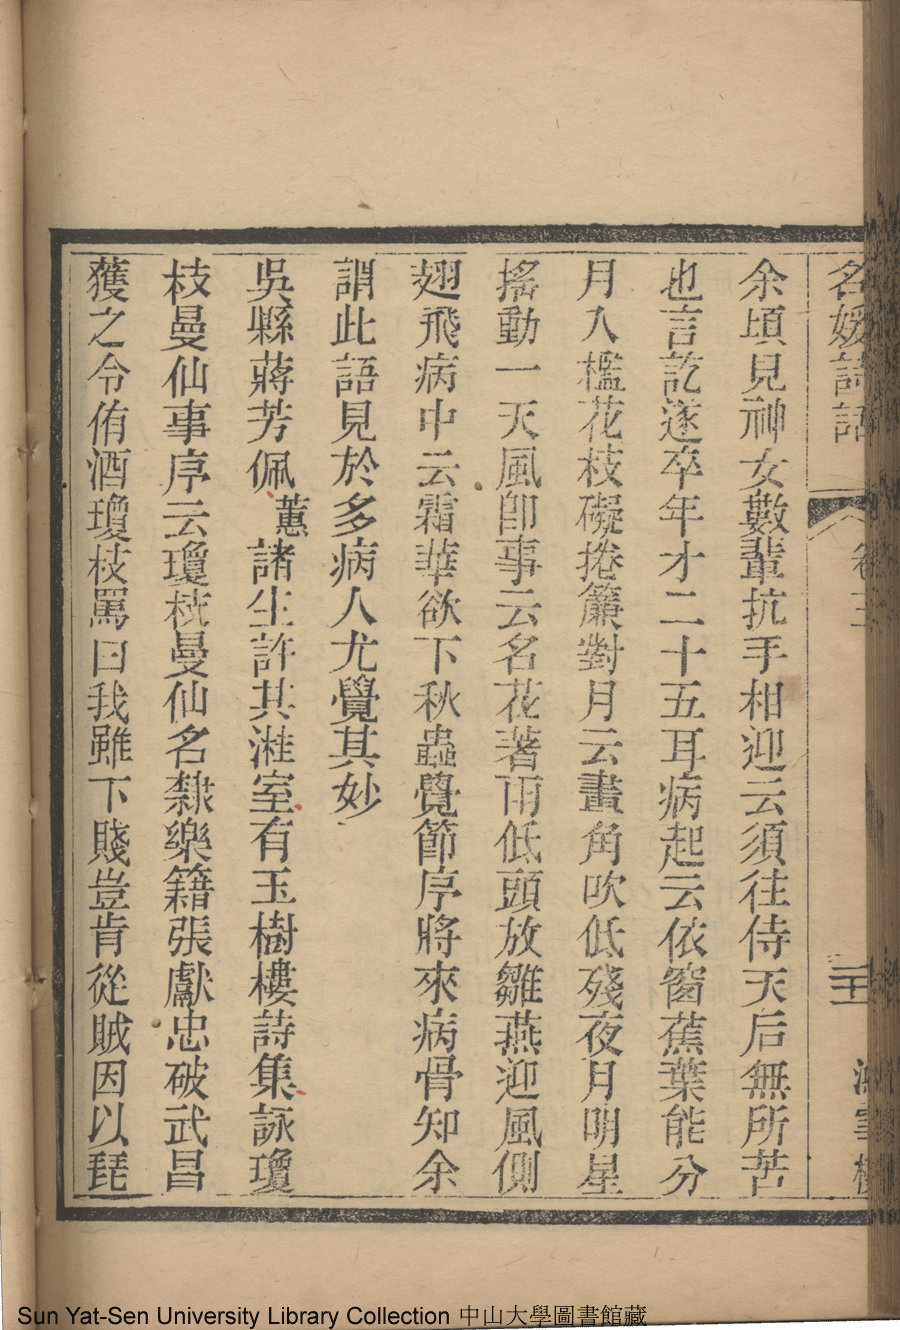 名媛詩話 卷三 二十
余頃見神女數輩抗手相迎云須往侍天后無所苦
也言訖遂卒年才二十五耳病起云依窗蕉葉能分
月入檻花枝礙捲簾對月云畫角吹低殘夜月明星
搖動一天風卽事云名花著雨低頭放雛燕迎風側
翅飛病中云霜華欲下秋蟲覺節序將來病骨知余
謂此語見於多病人尤覺其妙
吳縣蔣芳佩蕙諸生許其漼室有玉樹樓詩集詠瓊
枝曼仙事序云瓊枝曼仙名隸樂籍張獻忠破武昌
獲之令侑酒瓊枝罵曰我雖下賤豈肯從賊因以琵
Sun Yat-Sen University Library Collection 中山大學圖書館藏